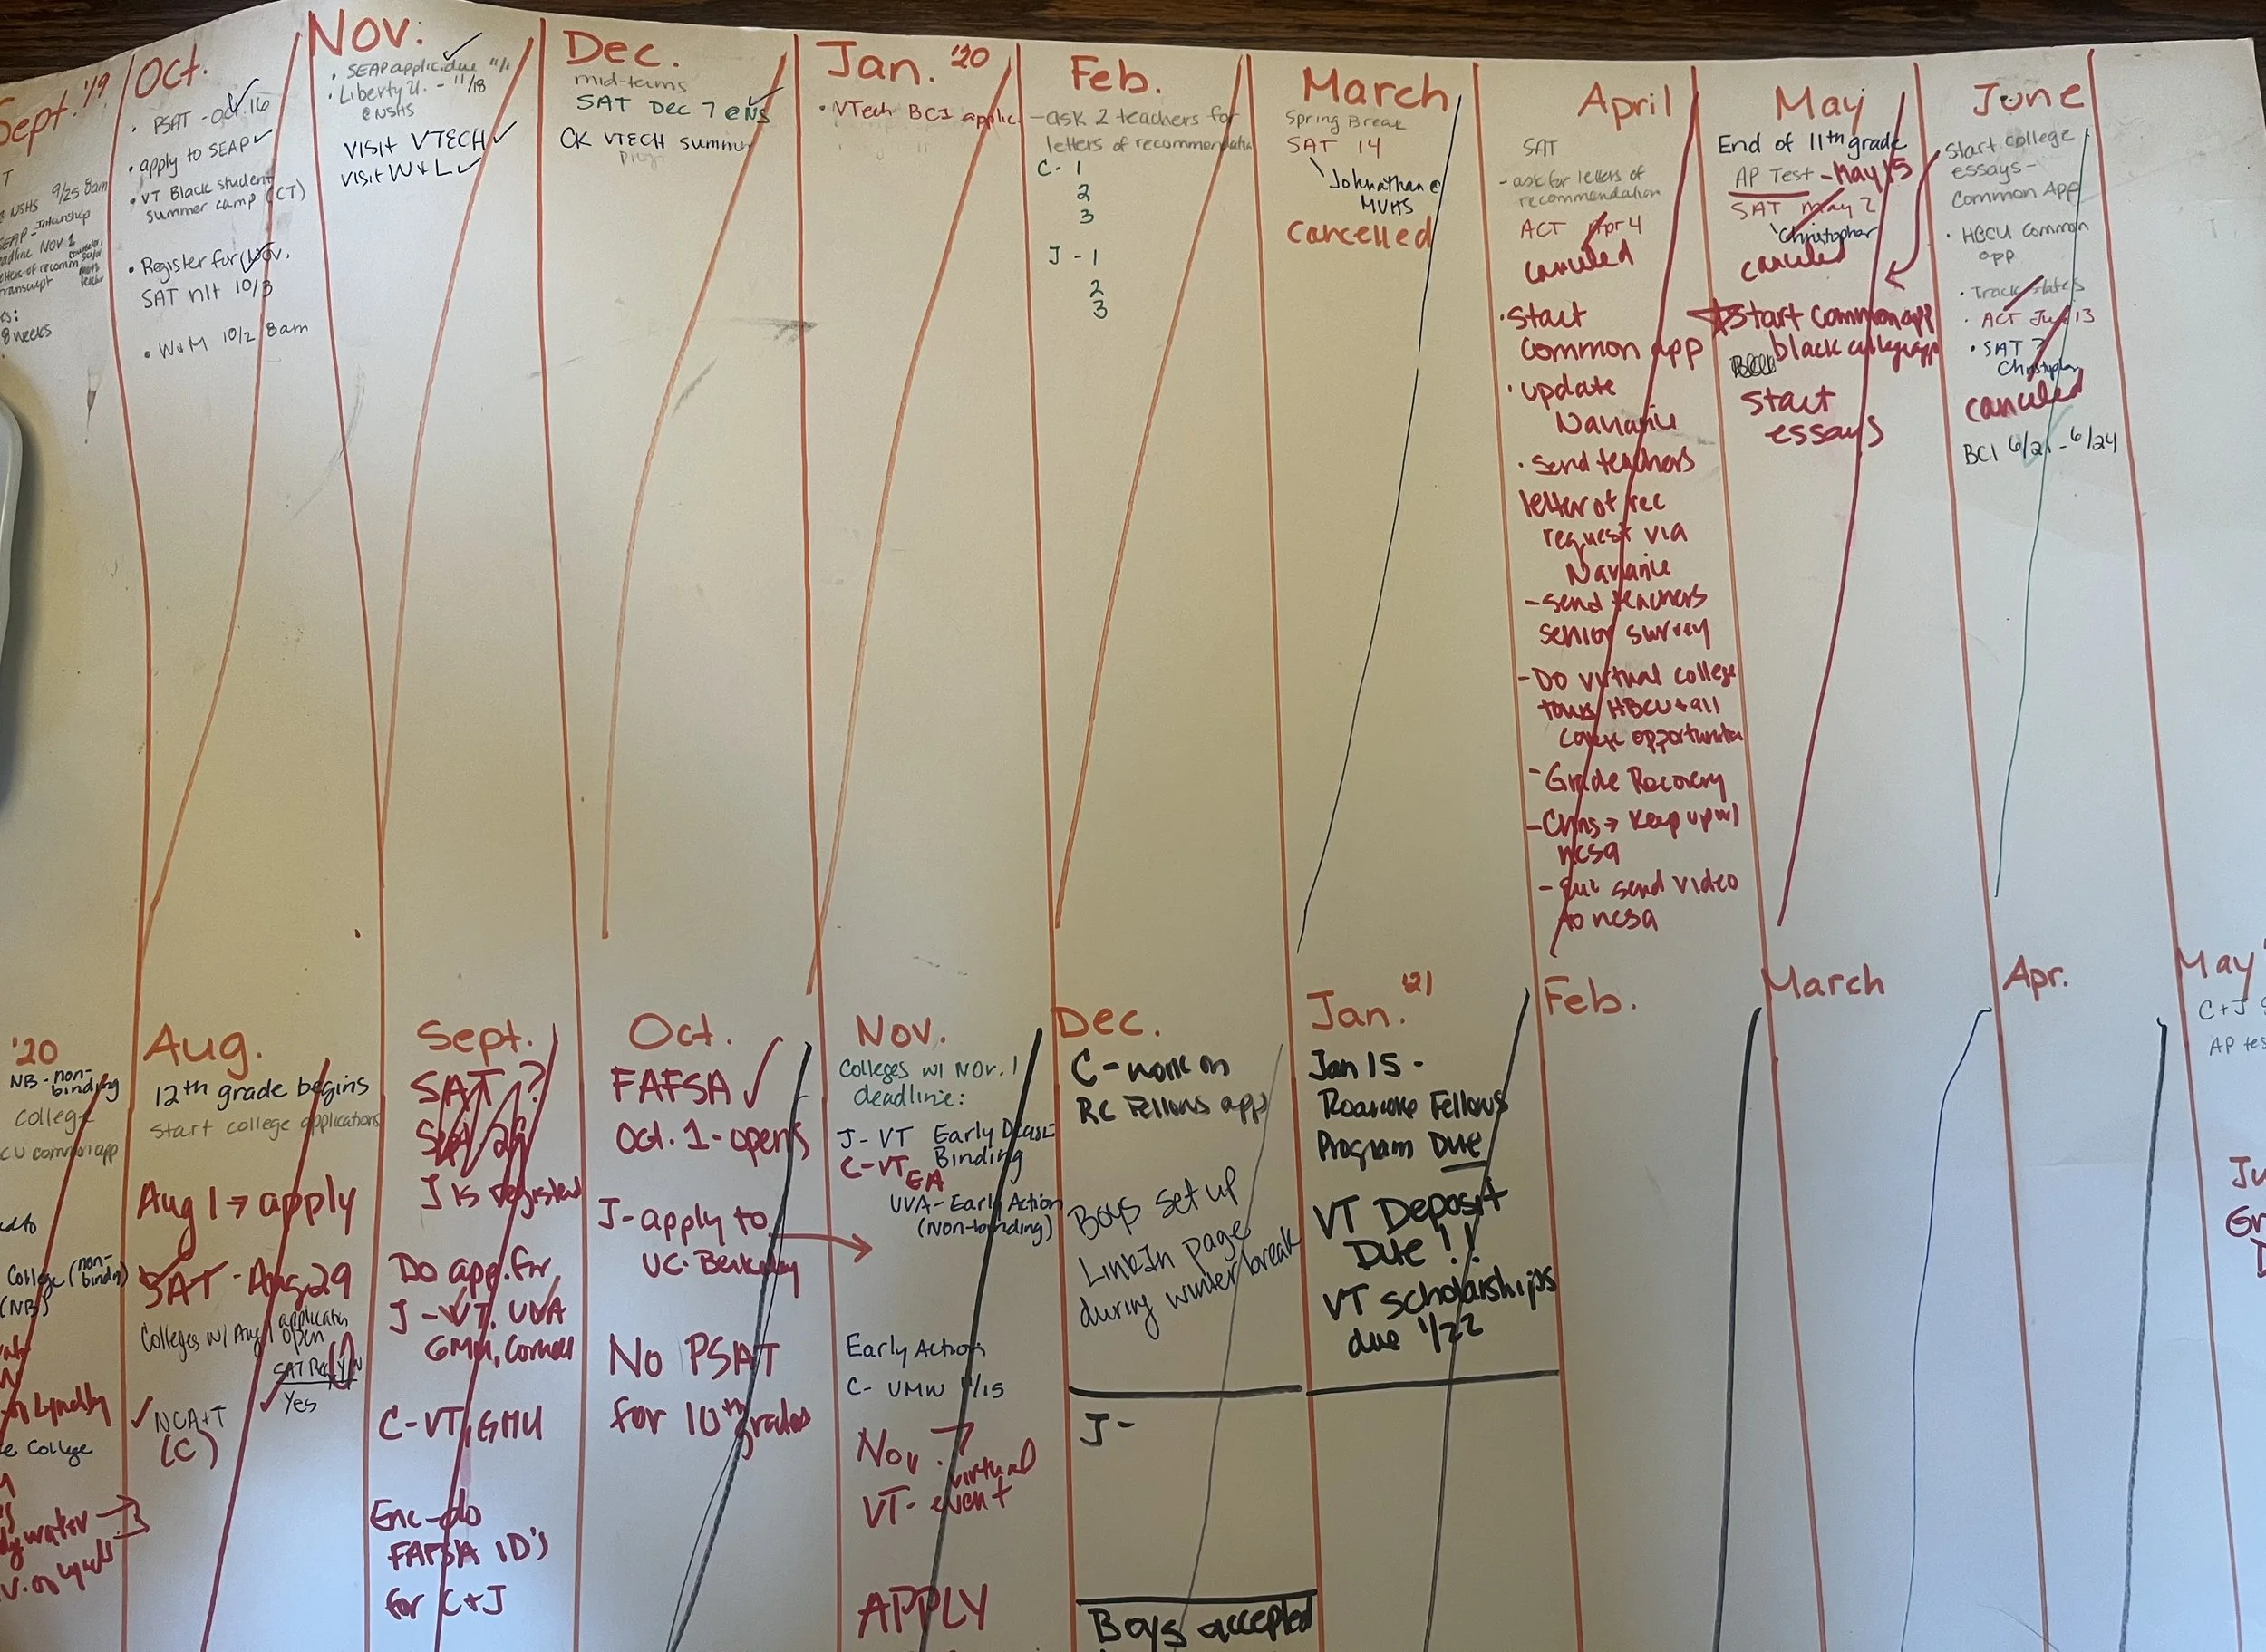 Sept. '19
T
@ NSHS 9/25 8am
SEAP - Internship
deadline NOV 1
letters of recomm
transcript
8 weeks
Oct.
• PSAT - Oct. 16
• apply to SEAP ✓
• VT Black student
summer camp (CT)
• Register for Nov.
SAT nlt 10/3
• W&M 10/2 8am
Nov.
• SEAP applic. due 11/1
• Liberty U. - 11/18
@ NSHS
VISIT VTECH ✓
VISIT W&L ✓
Dec.
mid-terms
SAT Dec 7 @ NS
CK VTECH summer
progr
Jan. '20
• VTech BCI applic.
Feb.
- ask 2 teachers for
letters of recommendation
C - 1
2
3
J - 1
2
3
March
Spring Break
SAT 14
Johnathan @
MVHS
Cancelled
April
SAT
- ask for letters of
recommendation
ACT Apr 4
canceled
• Start
common app
• update
Naviance
• Send teachers
letter of rec
request via
Naviance
- Send teachers
senior survey
- Do virtual college
tours HBCU + all
college opportunities
- Grade Recovery
- Chris → Keep up w/
ncsa
- send video
to ncsa
May
End of 11th grade
AP Test - May 15
SAT May 2
Christopher
canceled
☆ Start common app
black college app
Start
essays
June
Start college
essays -
Common App
• HBCU Common
app
• Track dates
• ACT Jun 13
• SAT ?
Christopher
canceled
BCI 6/21 - 6/24
'20
NB - non-
binding
College
CU common app
College (non-
binding)
(NB)
Lynchburg
College
water
Aug.
12th grade begins
Start college applications
Aug 1 → apply
SAT - Aug 29
Colleges w/ Aug 1 application
open
SAT Req Y/N
✓ NCA+T ✓ Yes
(C)
Sept.
SAT ?
Sept 26
J is registered
Do app. for
J - VT, UVA
GMU, Cornell
C - VT, GMU
Enc - do
FAFSA ID's
for C+J
Oct.
FAFSA ✓
Oct. 1 - opens
J - apply to
UC. Berkeley
No PSAT
for 10th grades
Nov.
Colleges w/ Nov. 1
deadline:
J - VT Early Decis.
Binding
C - VT EA
UVA - Early Action
(Non-binding)
Early Action
C - UMW 11/15
Nov. 7
virtual
VT - event
APPLY
Dec.
C - work on
RC Fellows app
Boys set up
LinkIn page
during winter break
J -
Boys accepted
Jan. '21
Jan 15 -
Roanoke Fellows
Program Due
VT Deposit
Due !!
VT Scholarships
due 1/22
Feb.
March
Apr.
May
C + J
AP tes